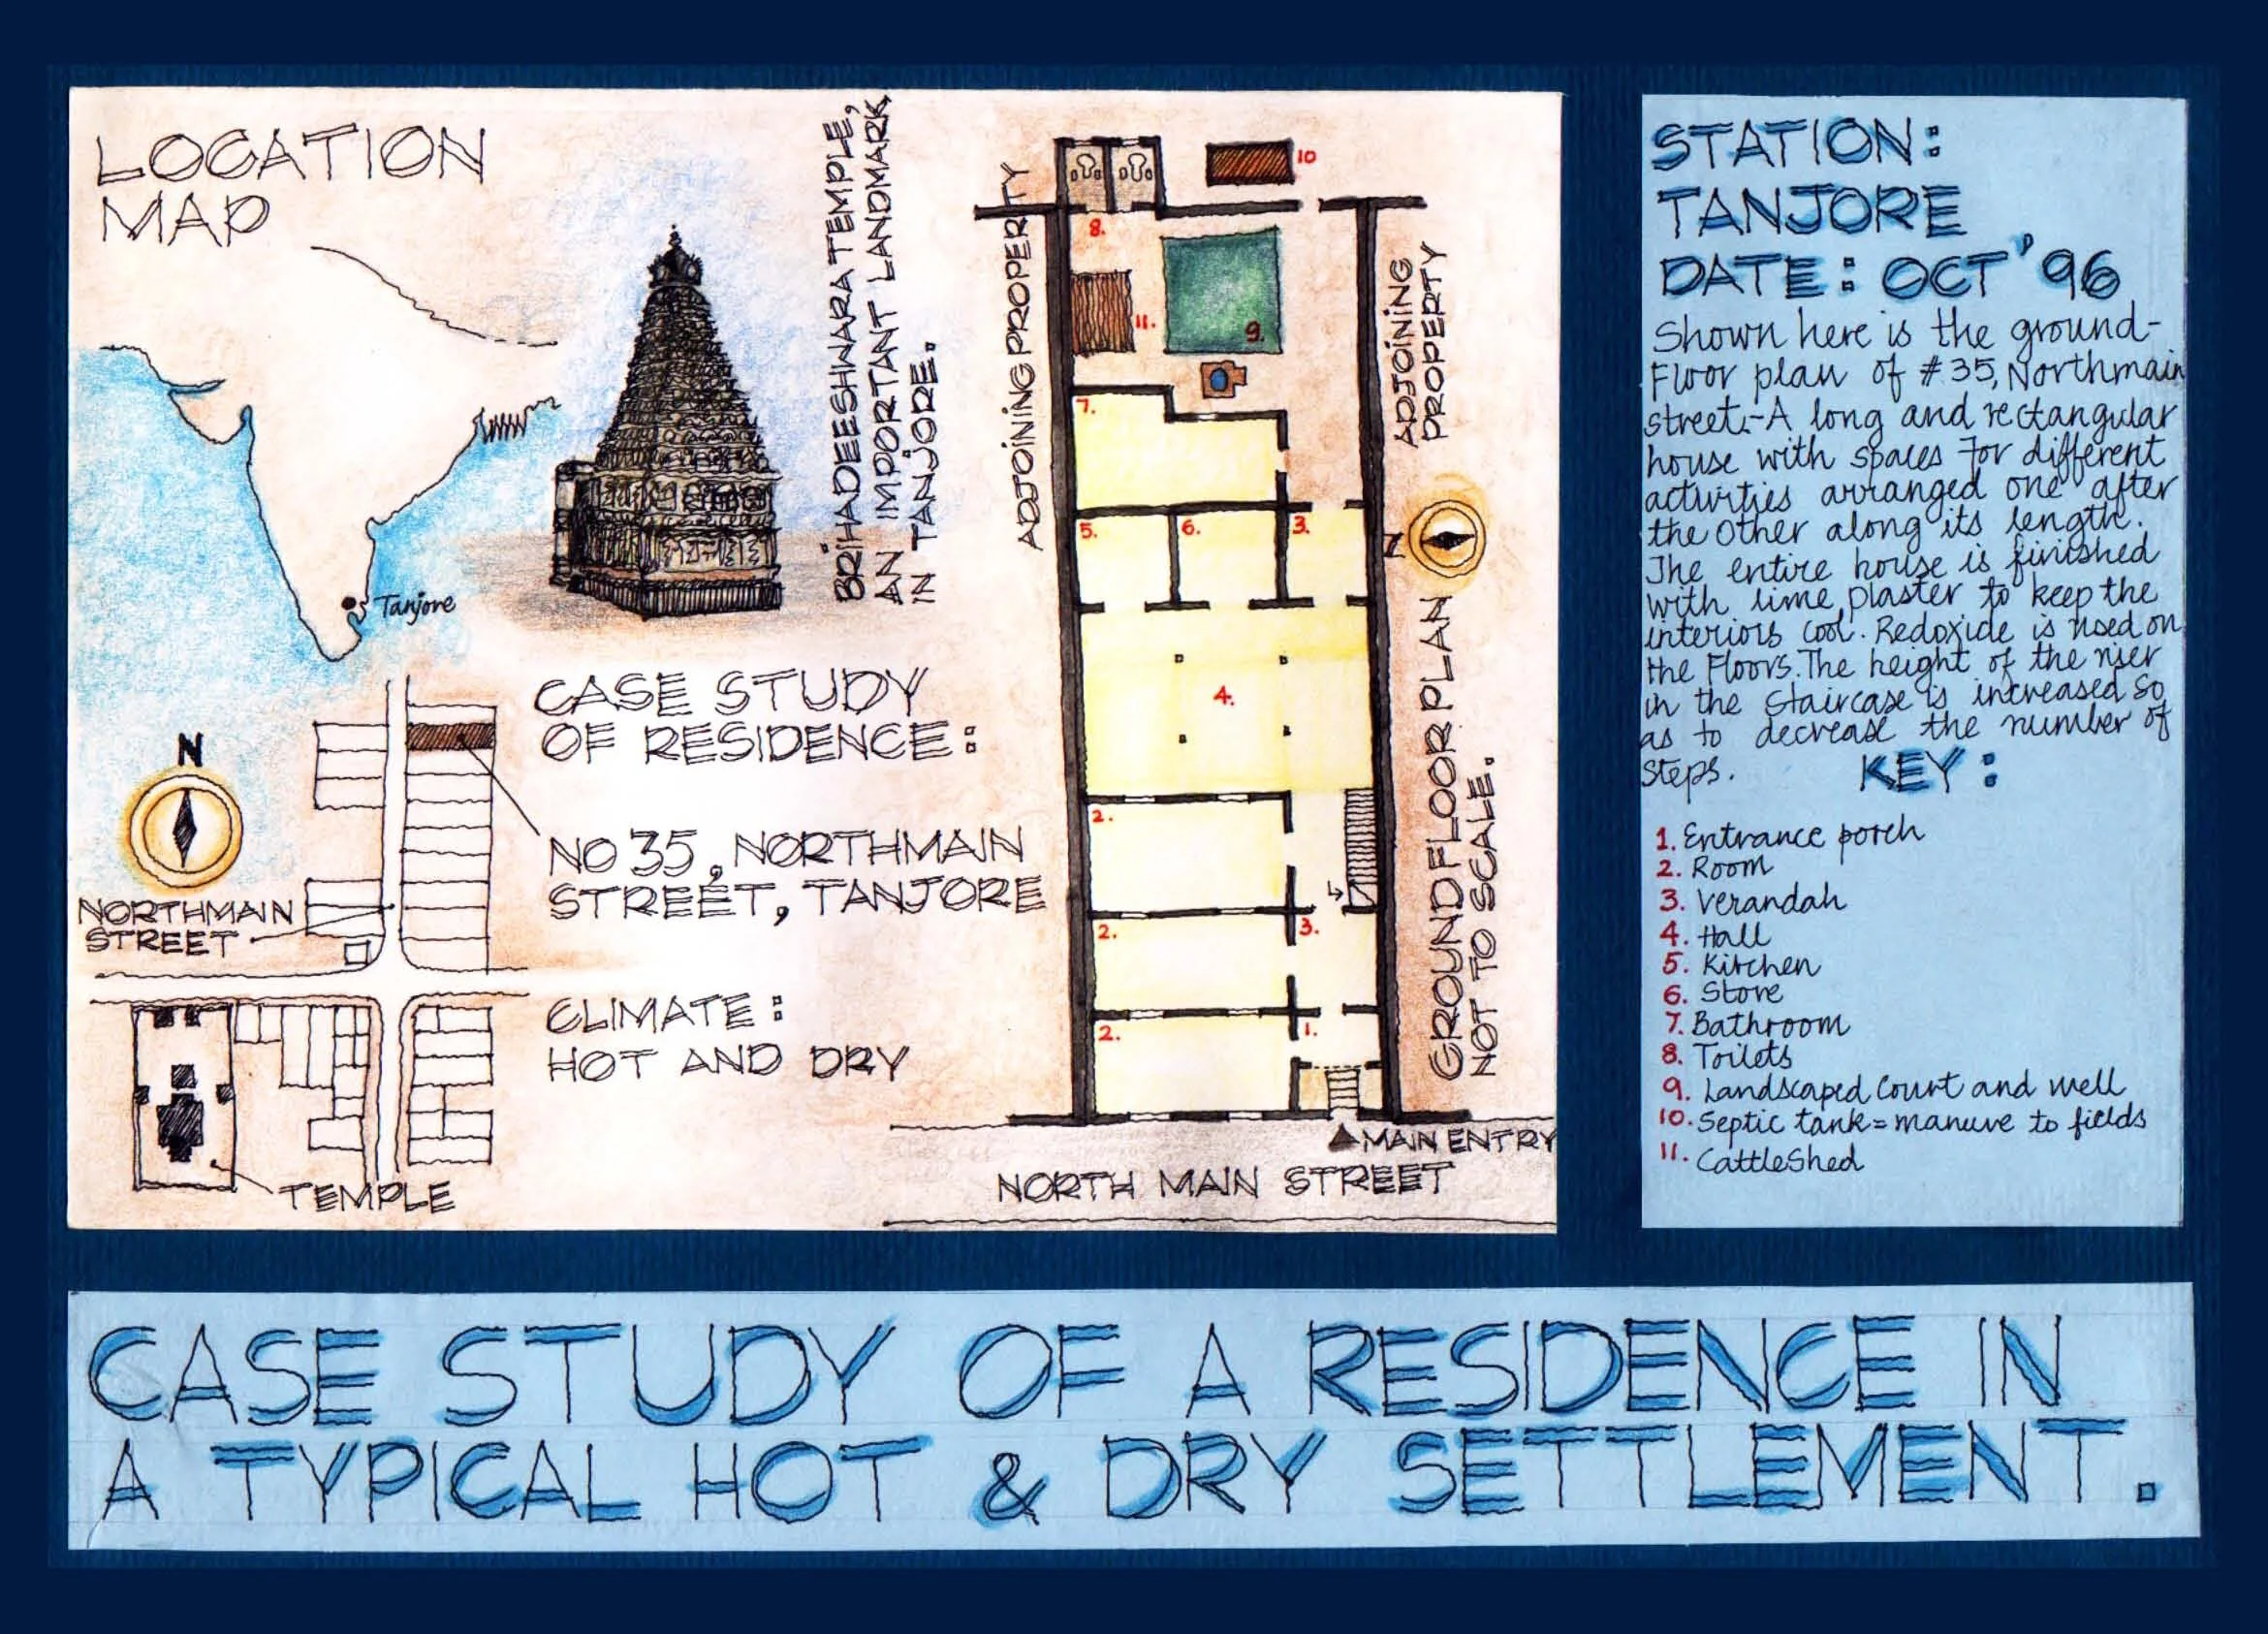 LOCATION
MAP
Tanjore
BRIHADEESHWARA TEMPLE,
AN IMPORTANT LANDMARK
IN TANJORE.
CASE STUDY
OF RESIDENCE:
NO 35, NORTHMAIN
STREET, TANJORE
N
NORTHMAIN
STREET
CLIMATE:
HOT AND DRY
TEMPLE
ADJOINING PROPERTY
ADJOINING
PROPERTY
10
8.
11.
9.
7.
5.
6.
3.
N
4.
2.
2.
3.
2.
1.
GROUND FLOOR PLAN
NOT TO SCALE.
MAIN ENTRY
NORTH MAIN STREET
STATION:
TANJORE
DATE: OCT '96
Shown here is the ground-
Floor plan of #35, Northmain
street.-A long and rectangular
house with spaces for different
activities arranged one after
the other along its length.
The entire house is finished
with lime plaster to keep the
interiors cool. Redoxide is used on
the Floors. The height of the riser
in the staircase is increased so
as to decrease the number of
steps.
KEY:
1. Entrance porch
2. Room
3. Verandah
4. Hall
5. Kitchen
6. Store
7. Bathroom
8. Toilets
9. Landscaped Court and well
10. Septic tank = manure to fields
11. CattleShed
CASE STUDY OF A RESIDENCE IN
A TYPICAL HOT & DRY SETTLEMENT.